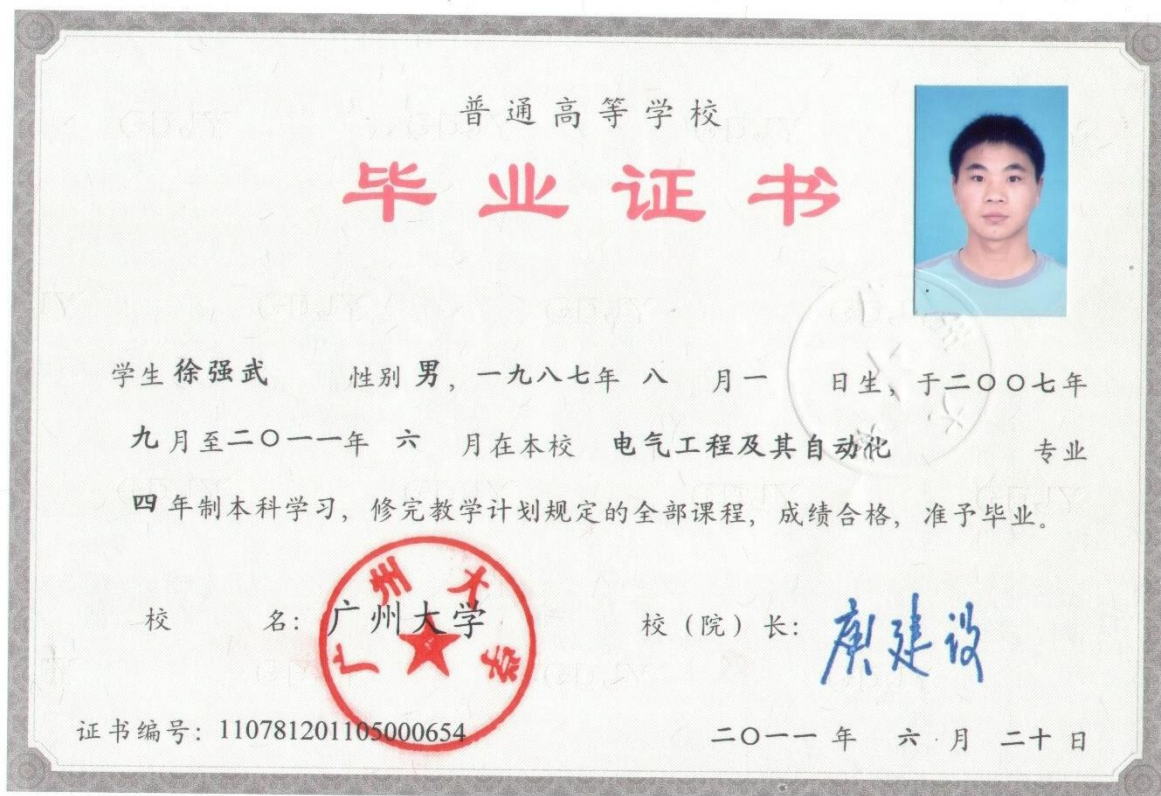 普通高等学校
毕业证书
学生 徐强武 性别 男，一九八七年 八 月 一 日生，于二〇〇七年
九月至二〇一一年 六 月在本校 电气工程及其自动化 专业
四年制本科学习，修完教学计划规定的全部课程，成绩合格，准予毕业。
校 名：广州大学
广州大学
校（院）长：庾建设
证书编号：110781201105000654
二〇一一 年 六 月 二十 日